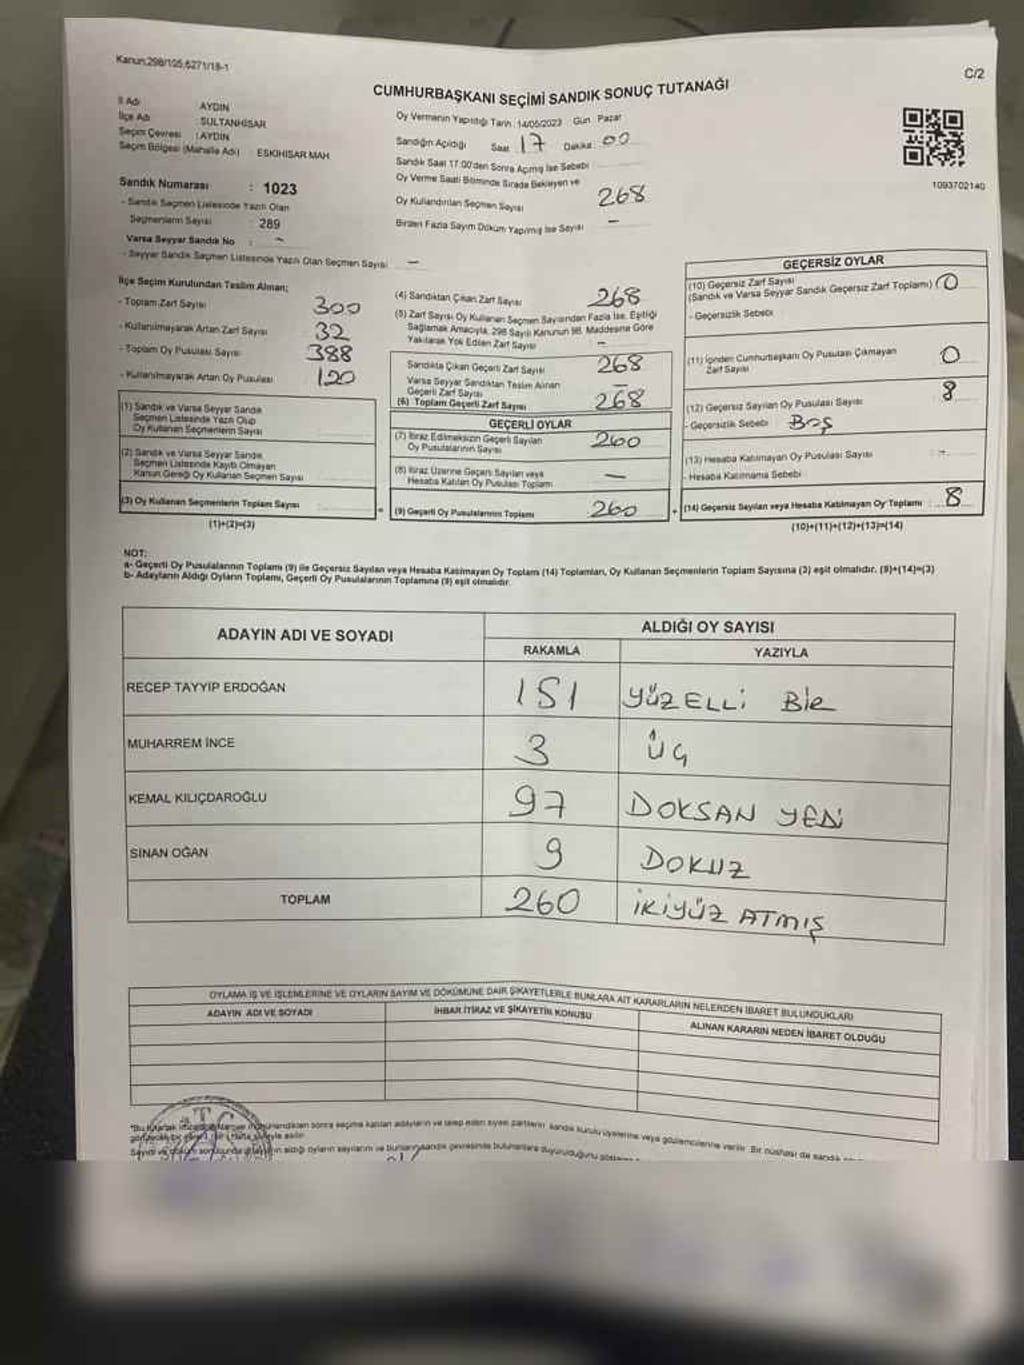 Kanun:298/105,6271/18-1
C/2
CUMHURBAŞKANI SEÇİMİ SANDIK SONUÇ TUTANAĞI
İl Adı : AYDIN
İlçe Adı : SULTANHİSAR
Seçim Çevresi : AYDIN
Seçim Bölgesi (Mahalle Adı) : ESKİHİSAR MAH
Sandık Numarası : 1023
- Sandık Seçmen Listesinde Yazılı Olan
Seçmenlerin Sayısı : 289
Varsa Seyyar Sandık No : -
- Seyyar Sandık Seçmen Listesinde Yazılı Olan Seçmen Sayısı : -
Oy Vermenin Yapıldığı Tarih :14/05/2023 Gün : Pazar
Sandığın Açıldığı Saat : 17 Dakika : 00
Sandık Saat 17:00'den Sonra Açılmış İse Sebebi
Oy Verme Saati Bitiminde Sırada Bekleyen ve
Oy Kullandırılan Seçmen Sayısı 268
Birden Fazla Sayım Döküm Yapılmış İse Sayısı -
1093702140
İlçe Seçim Kurulundan Teslim Alınan;
- Toplam Zarf Sayısı 300
- Kullanılmayarak Artan Zarf Sayısı 32
- Toplam Oy Pusulası Sayısı 388
- Kullanılmayarak Artan Oy Pusulası 120
(1) Sandık ve Varsa Seyyar Sandık
Seçmen Listesinde Yazılı Olup
Oy Kullanan Seçmenlerin Sayısı
(2) Sandık ve Varsa Seyyar Sandık
Seçmen Listesinde Kayıtlı Olmayan
Kanun Gereği Oy Kullanan Seçmen Sayısı
(3) Oy Kullanan Seçmenlerin Toplam Sayısı
(1)+(2)=(3)
(4) Sandıktan Çıkan Zarf Sayısı 268
(5) Zarf Sayısı Oy Kullanan Seçmen Sayısından Fazla İse, Eşitliği
Sağlamak Amacıyla, 298 Sayılı Kanunun 98. Maddesine Göre
Yakılarak Yok Edilen Zarf Sayısı -
Sandıkta Çıkan Geçerli Zarf Sayısı 268
Varsa Seyyar Sandıktan Teslim Alınan
Geçerli Zarf Sayısı -
(6) Toplam Geçerli Zarf Sayısı 268
GEÇERLİ OYLAR
(7) İtiraz Edilmeksizin Geçerli Sayılan
Oy Pusulalarının Sayısı 260
(8) İtiraz Üzerine Geçerli Sayılan veya
Hesaba Katılan Oy Pusulası Toplamı -
= (9) Geçerli Oy Pusulalarının Toplamı 260
GEÇERSİZ OYLAR
(10) Geçersiz Zarf Sayısı
(Sandık ve Varsa Seyyar Sandık Geçersiz Zarf Toplamı) 0
- Geçersizlik Sebebi
(11) İçinden Cumhurbaşkanı Oy Pusulası Çıkmayan
Zarf Sayısı 0
(12) Geçersiz Sayılan Oy Pusulası Sayısı 8
- Geçersizlik Sebebi : Boş
(13) Hesaba Katılmayan Oy Pusulası Sayısı -
- Hesaba Katılmama Sebebi
+ (14) Geçersiz Sayılan veya Hesaba Katılmayan Oy Toplamı : 8
(10)+(11)+(12)+(13)=(14)
NOT:
a- Geçerli Oy Pusulalarının Toplamı (9) ile Geçersiz Sayılan veya Hesaba Katılmayan Oy Toplamı (14) Toplamları, Oy Kullanan Seçmenlerin Toplam Sayısına (3) eşit olmalıdır. (9)+(14)=(3)
b- Adayların Aldığı Oyların Toplamı, Geçerli Oy Pusulalarının Toplamına (9) eşit olmalıdır.
ADAYIN ADI VE SOYADI
ALDIĞI OY SAYISI
RAKAMLA YAZIYLA
RECEP TAYYİP ERDOĞAN 151 YÜZELLİ BİR
MUHARREM İNCE 3 ÜÇ
KEMAL KILIÇDAROĞLU 97 DOKSAN YEDİ
SİNAN OĞAN 9 DOKUZ
TOPLAM 260 İKİYÜZ ATMIŞ
OYLAMA İŞ VE İŞLEMLERİNE VE OYLARIN SAYIM VE DÖKÜMÜNE DAİR ŞİKAYETLERLE BUNLARA AİT KARARLARIN NELERDEN İBARET BULUNDUKLARI
ADAYIN ADI VE SOYADI İHBAR İTİRAZ VE ŞİKAYETİN KONUSU ALINAN KARARIN NEDEN İBARET OLDUĞU
sonra seçime katılan adayların ve talep eden siyasi partilerin sandık kurulu üyelerine veya gözlemcilerine verilir. Bir nüshası da sandık
aldığı oyların sayılarını ve bunların sandık çevresinde bulunanlara duyurulduğunu